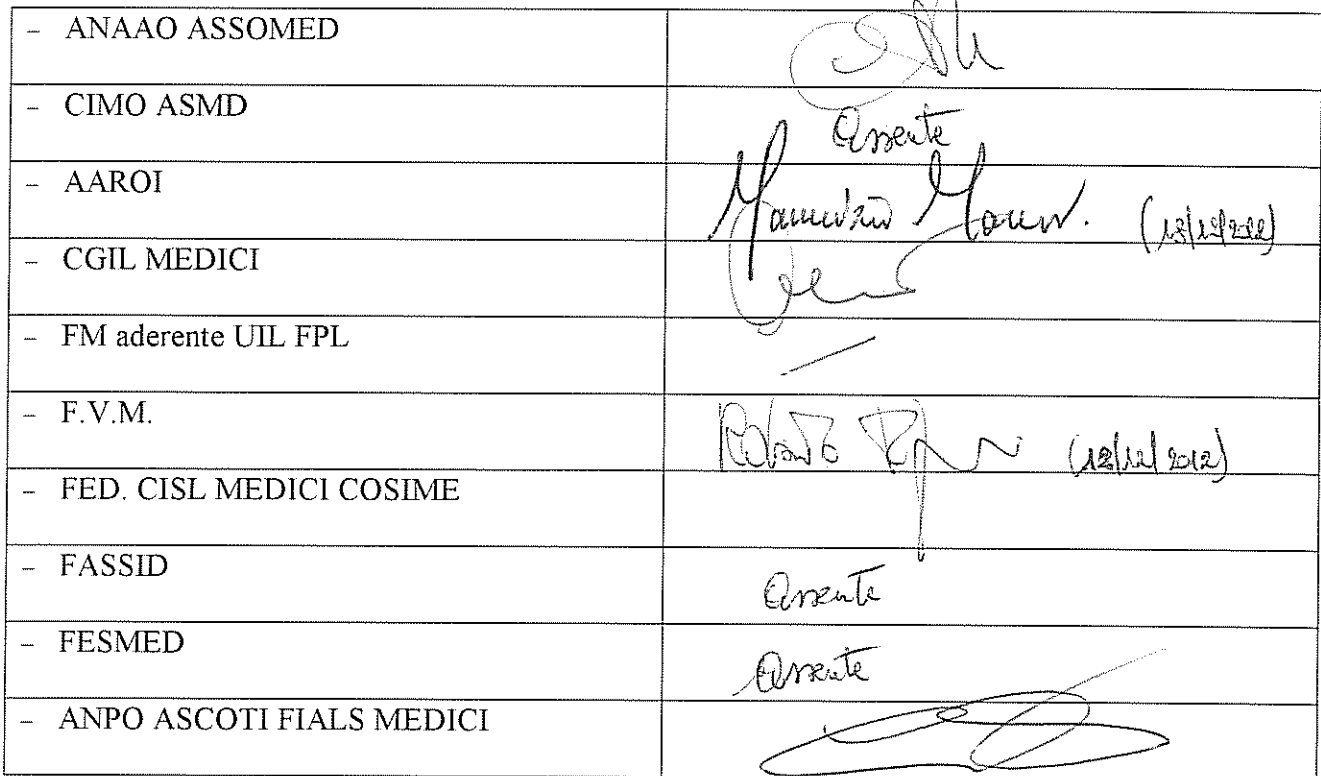 – ANAAO ASSOMED
– CIMO ASMD
assente
– AAROI
Maurizio
– CGIL MEDICI
– FM aderente UIL FPL
– F.V.M.
Roberto (12/12/2012)
– FED. CISL MEDICI COSIME
– FASSID
assente
– FESMED
assente
– ANPO ASCOTI FIALS MEDICI